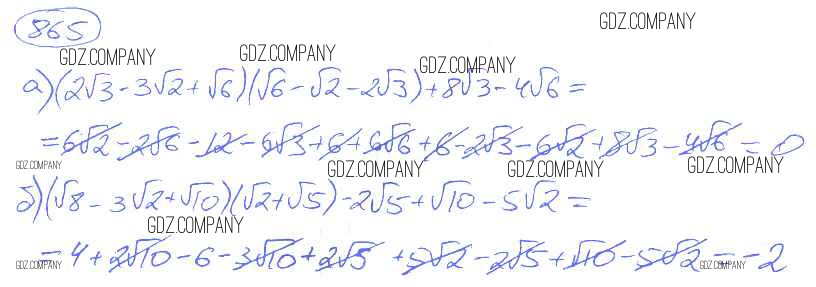 865
GDZ.COMPANY
GDZ.COMPANY
GDZ.COMPANY
GDZ.COMPANY
а) (2√3 - 3√2 + √6)(√6 - √2 - 2√3) + 8√3 - 4√6 =
= 6√2 - 2√6 - 12 - 6√3 + 6 + 6√6 + 6 - 2√3 - 6√2 + 8√3 - 4√6 = 0
GDZ.COMPANY
GDZ.COMPANY
GDZ.COMPANY
GDZ.COMPANY
б) (√8 - 3√2 + √10)(√2 + √5) - 2√5 + √10 - 5√2 =
GDZ.COMPANY
= 4 + 2√10 - 6 - 3√10 + 2√5 + 5√2 - 2√5 + √10 - 5√2 = -2
GDZ.COMPANY
GDZ.COMPANY